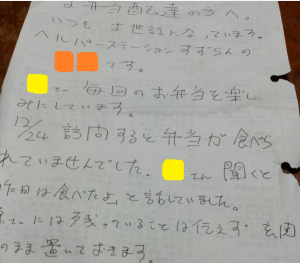 お弁当配達の方へ。
いつも、お世話になっています。
ヘルパーステーションすずらんの
です。
さん 毎回のお弁当を楽し
みにしています。
12/24 訪問すると弁当が食べら
れていませんでした。 さん聞くと
昨日は食べたよ」と話していました。
には残っていることは伝えず、玄関
のまま置いておきます。